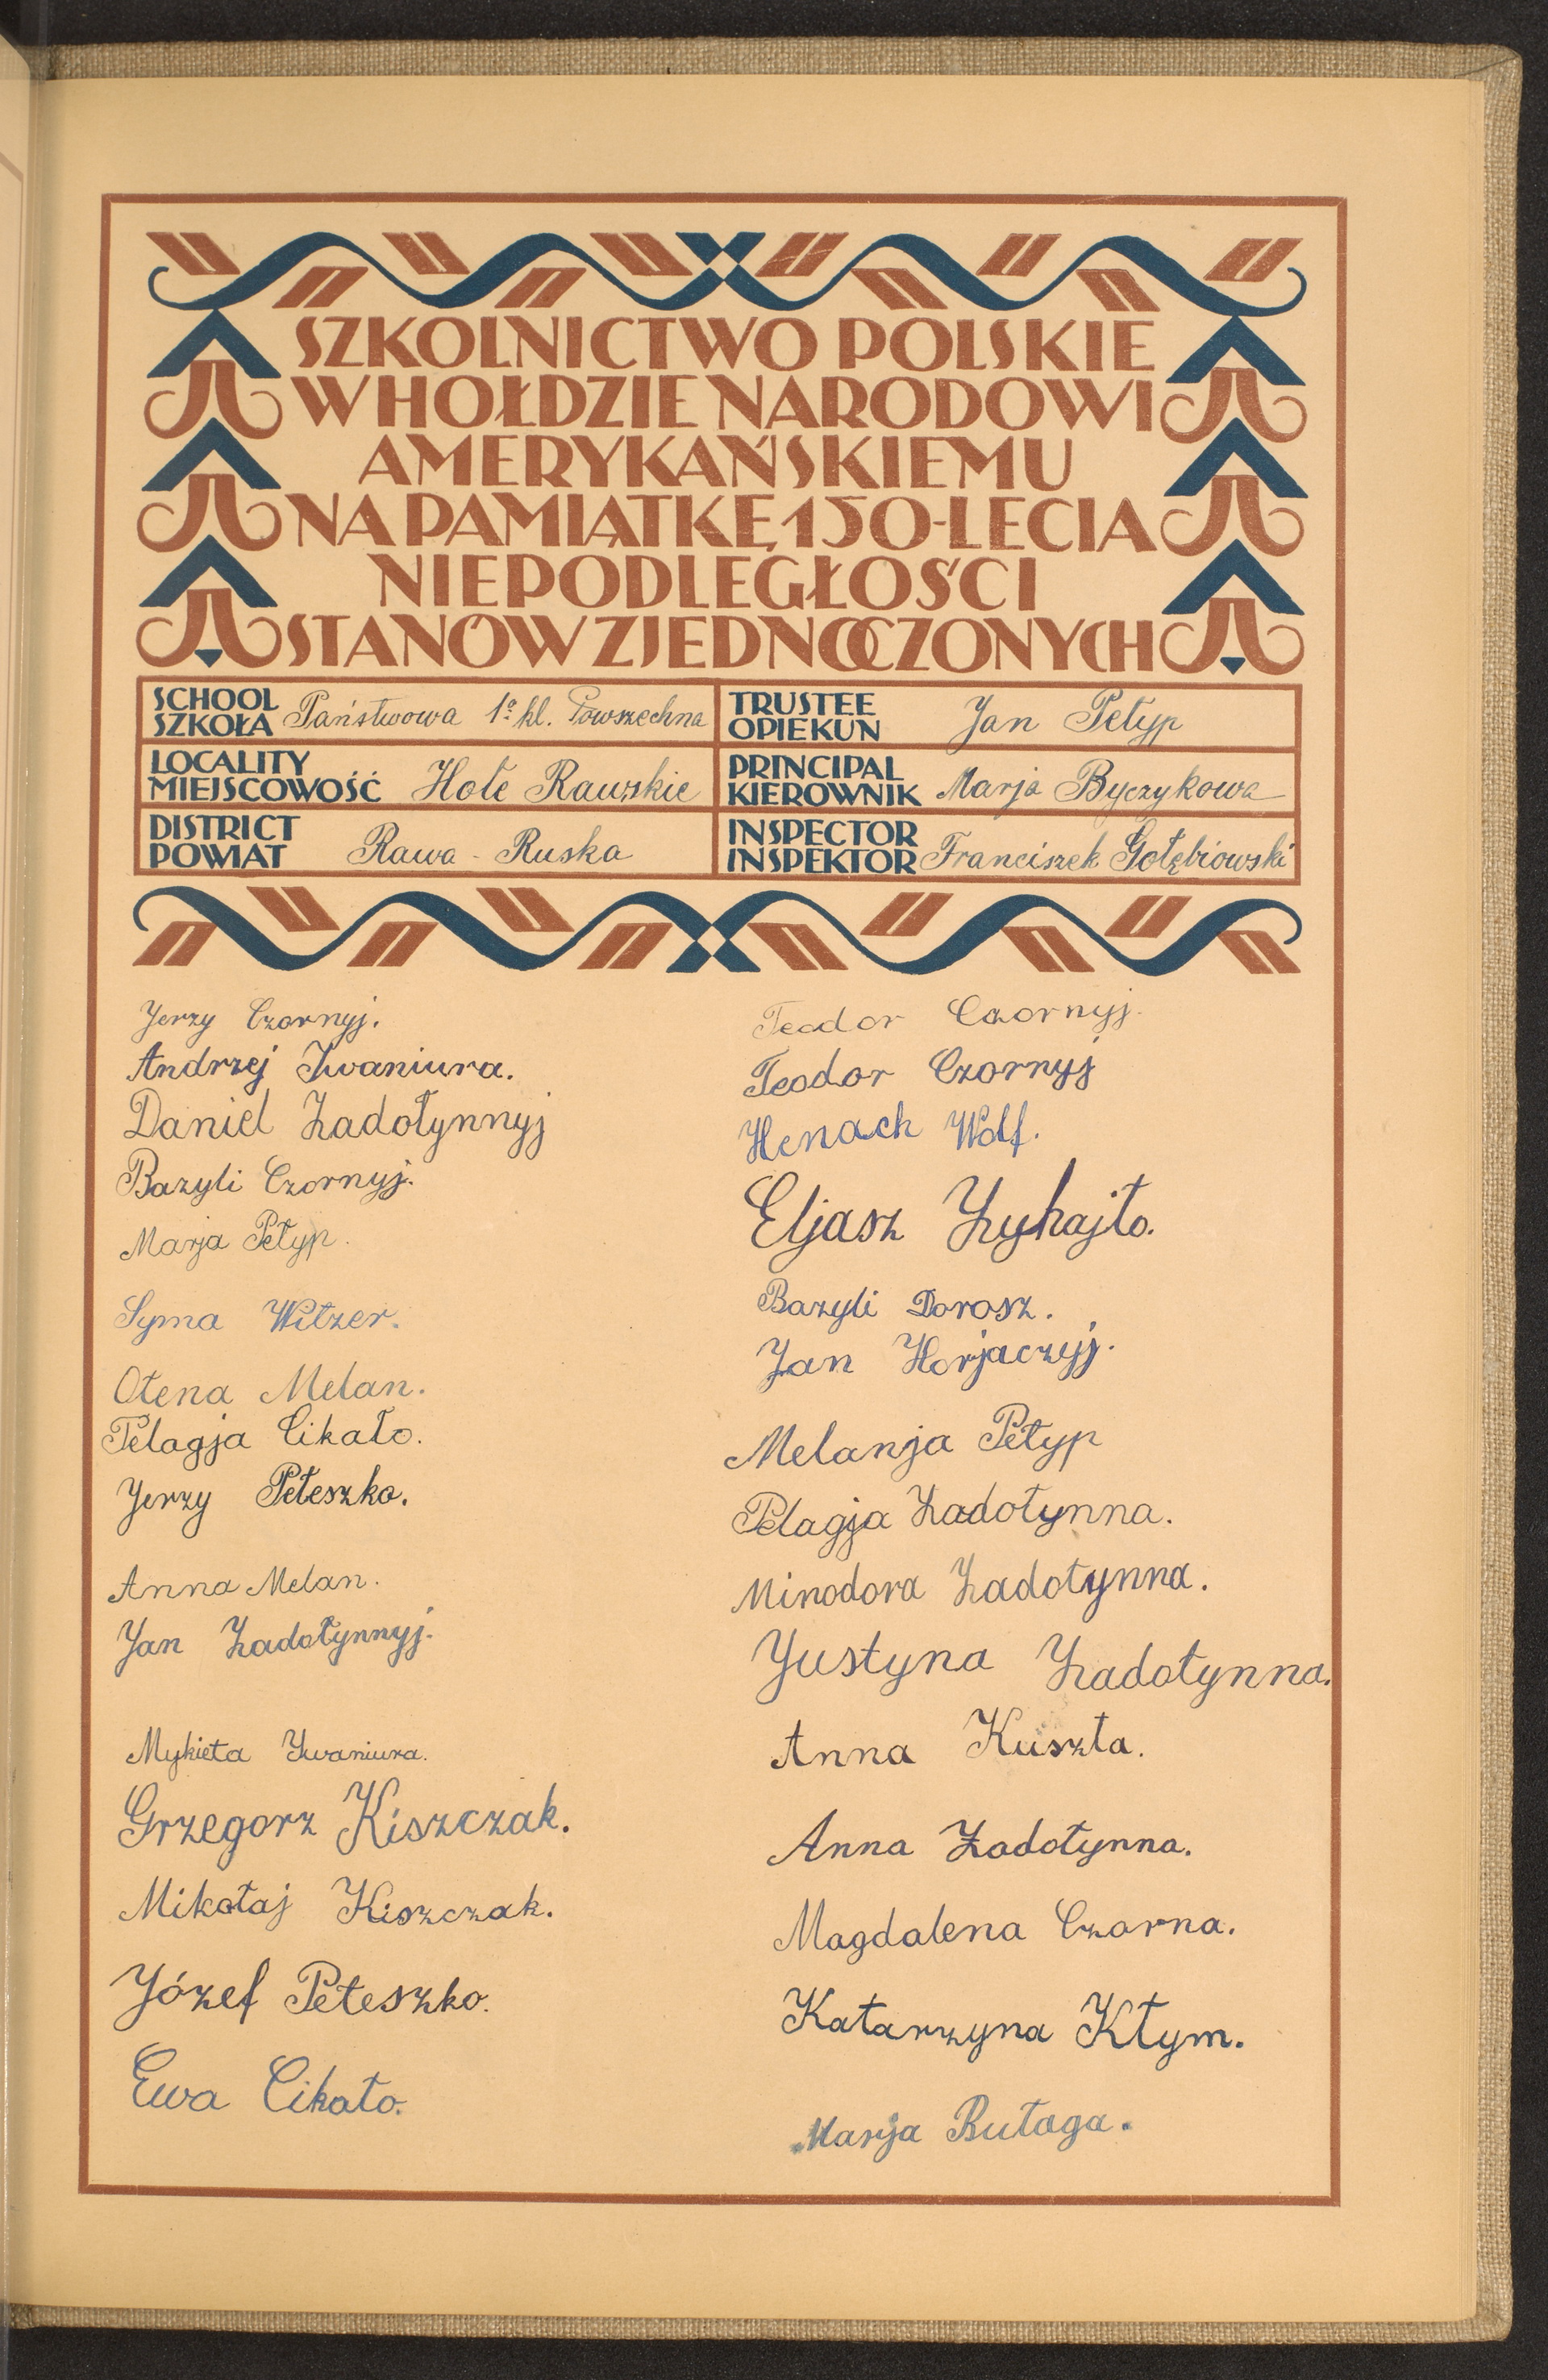 SZKOLNICTWO POLSKIE
W HOŁDZIE NARODOWI
AMERYKAŃSKIEMU
NA PAMIĄTKĘ 150-LECIA
NIEPODLEGŁOŚCI
STANÓW ZJEDNOCZONYCH
SCHOOL
SZKOŁA Państwowa 1º kl. Powszechna
TRUSTEE
OPIEKUN Jan Petyp
LOCALITY
MIEJSCOWOŚĆ Hołe Rawskie
PRINCIPAL
KIEROWNIK Marja Byczykowa
DISTRICT
POWIAT Rawa - Ruska
INSPECTOR
INSPEKTOR Franciszek Gołębiowski
Jerzy Czornyj.
Andrzej Iwaniura.
Daniel Zadołynnyj
Bazyli Czornyj.
Marja Petyp.
Syma Witzer.
Ołena Melan.
Pelagja Cikało.
Jerzy Peteszko.
Anna Melan.
Jan Zadołynnyj.
Mykieta Iwaniura.
Grzegorz Kiszczak.
Mikołaj Kiszczak.
Józef Peteszko.
Ewa Cikało.
Teodor Czornyj.
Teodor Czornyj
Henach Wolf.
Eljasz Zyhajło.
Bazyli Dorosz.
Jan Horjaczyj.
Melanja Petyp
Pelagja Zadołynna.
Minodora Zadołynna.
Justyna Zadołynna.
Anna Kuszta.
Anna Zadołynna.
Magdalena Czorna.
Katarzyna Kłym.
Marja Bułaga.